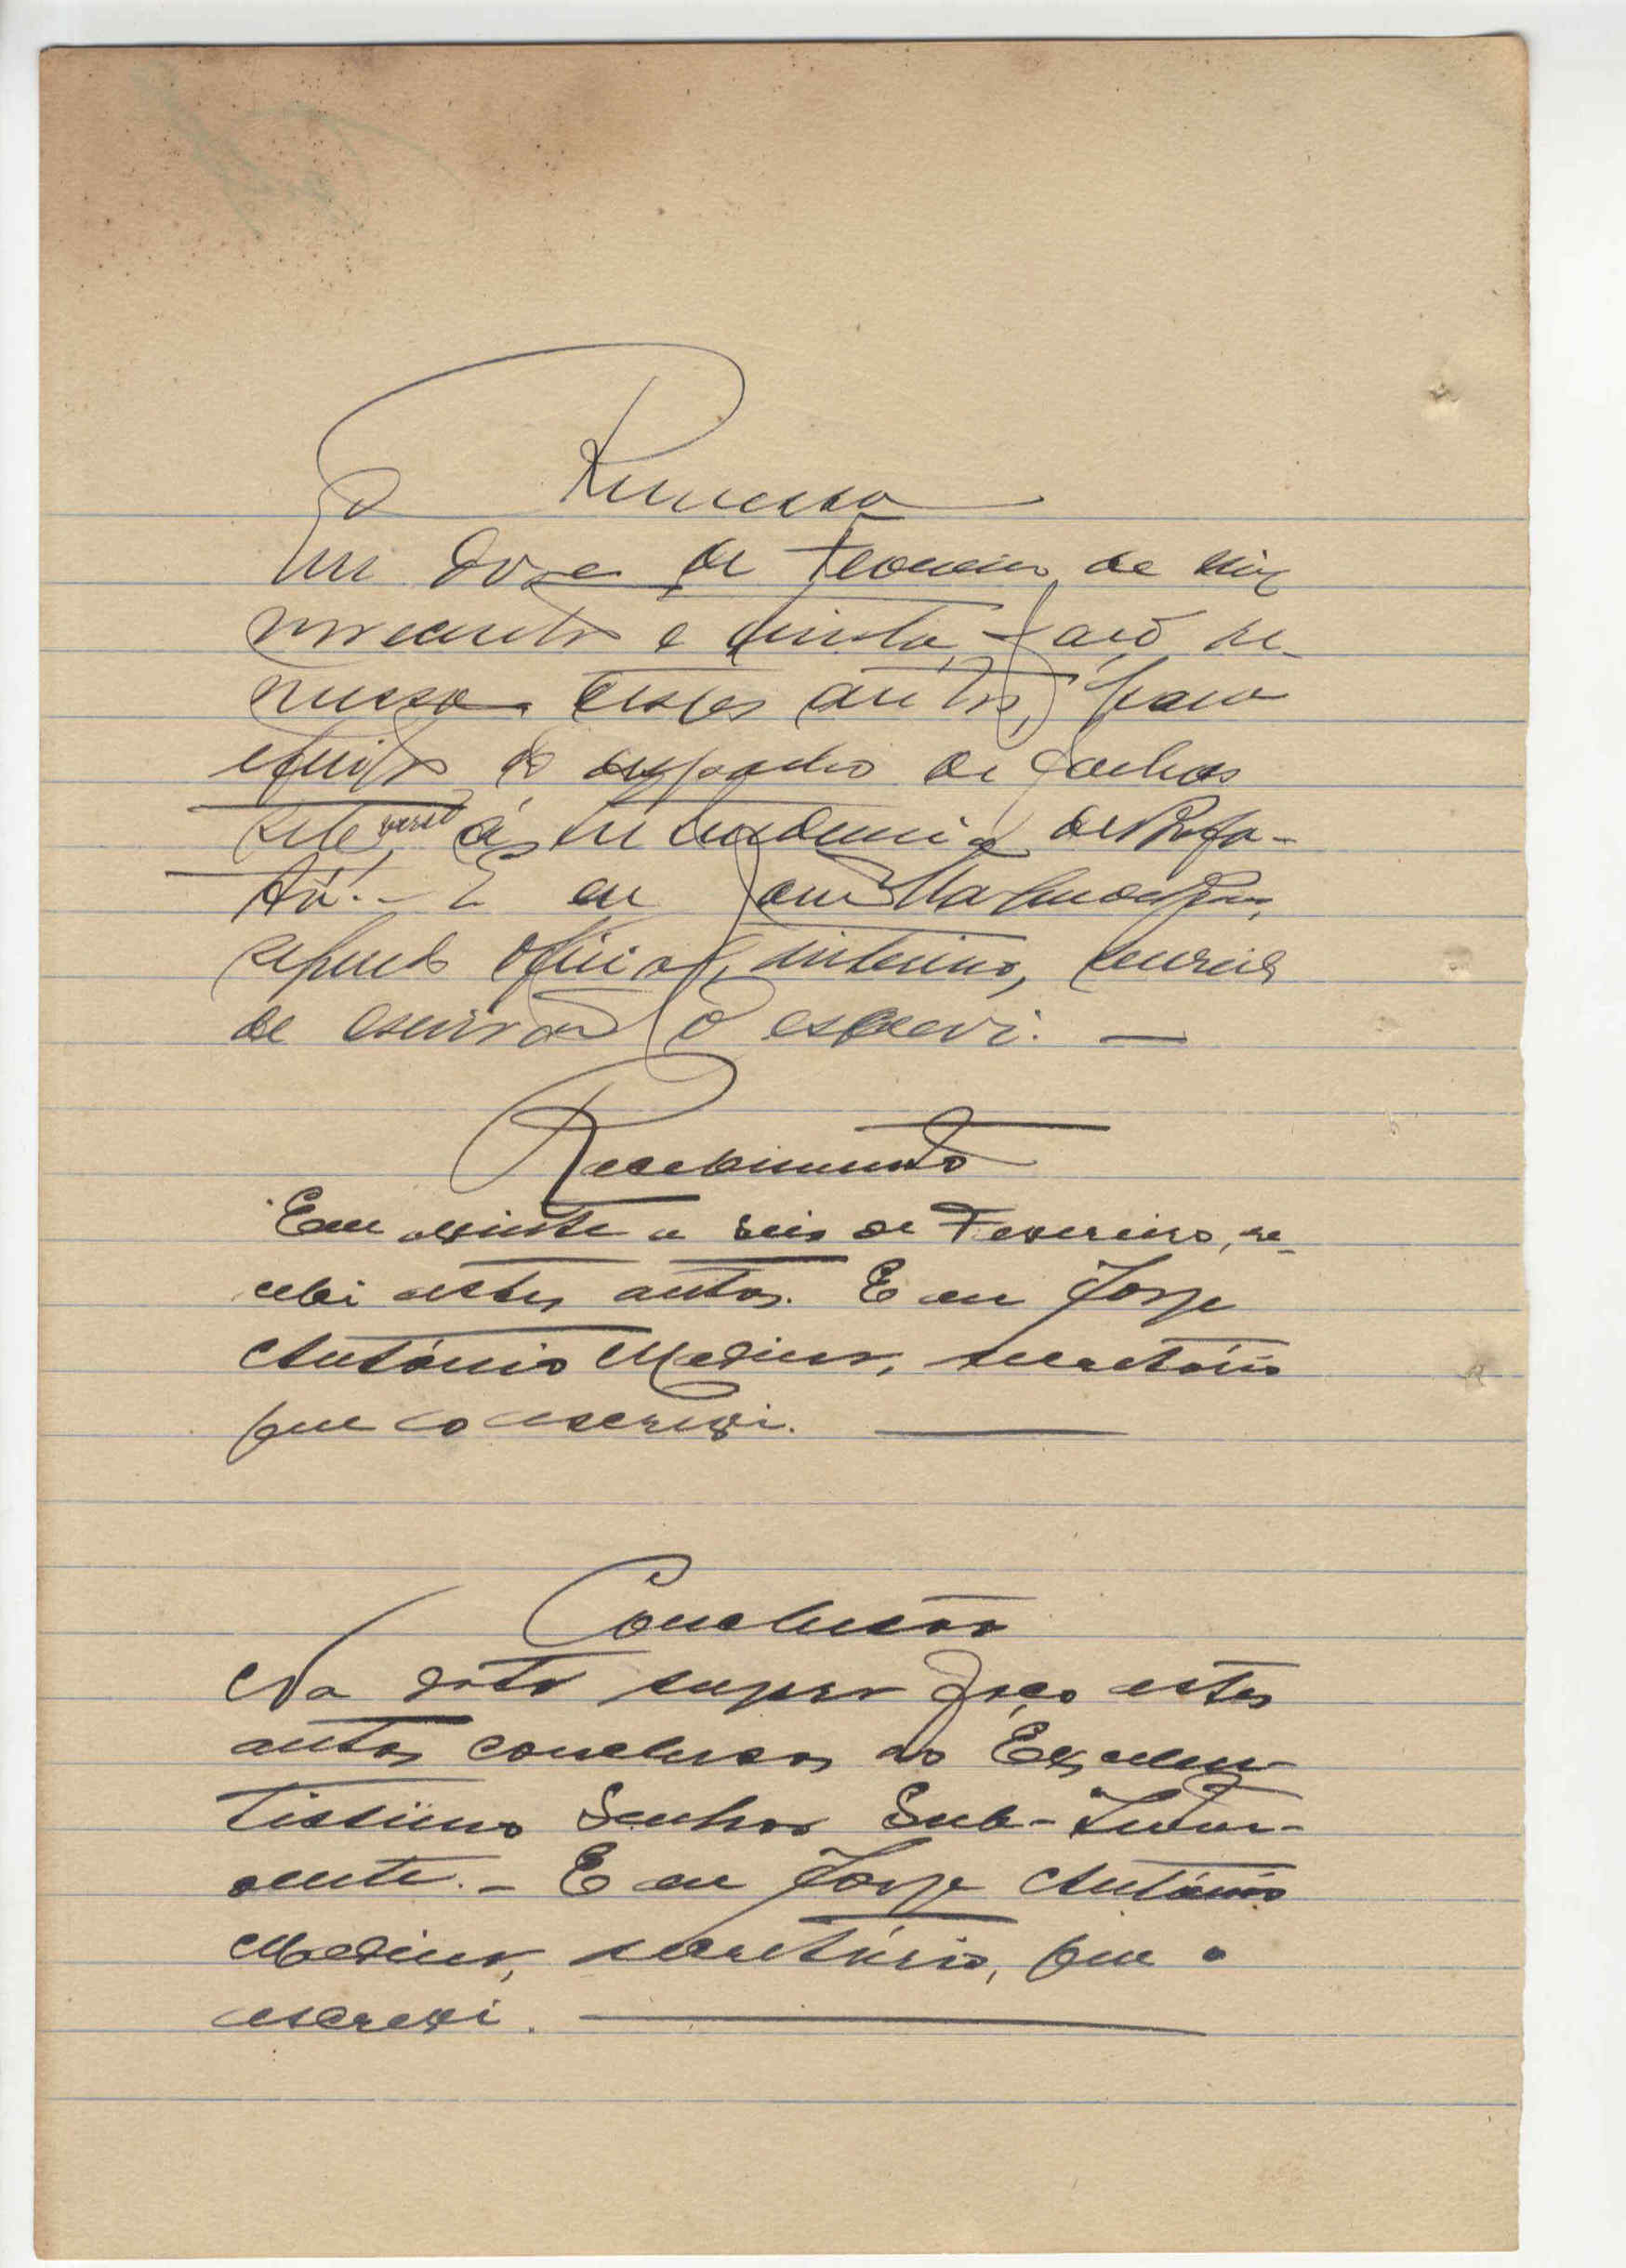 Remessa
Em doze de Fevereiro de mil
novecentos e trinta, faço re-
messa destes autos, para
efeitos do despacho de folhas
sete verso á Intendencia de Bafa-
tá. - E eu José
segundo oficial, interino, servindo
de escrivão o escrevi. —
Recebimento
Em vinte e seis de Fevereiro, re-
cebi estes autos. E eu Jorge
António Medina, secretário
que o escrevi. —
Conclusão
Na data supra faço estes
autos conclusos ao Excelen-
tissimo Senhor Sub-Inten-
dente. - E eu Jorge António
Medina, secretário, que o
escrevi. —